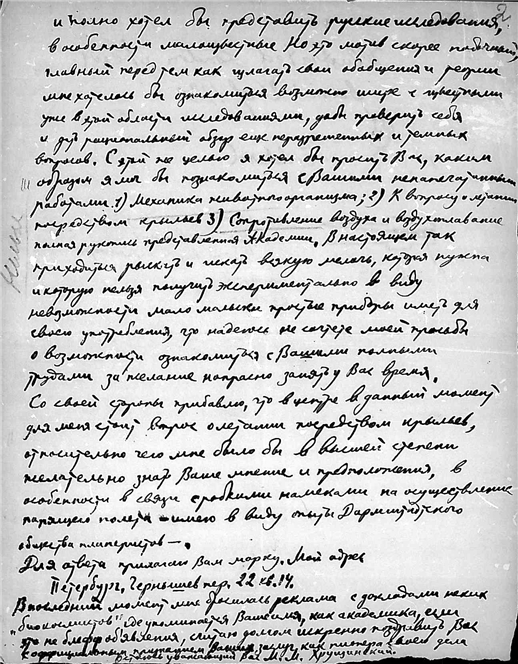 2.
и полно хотел бы представить русские исследования,
в особенности малоизвестные. Но это мотив скорее побочный,
главный перед тем как излагать свои обобщения и теории
мне хотелось бы ознакомиться возможно шире с известными
уже в этой области исследованиями, дабы проверить себя
и дать рациональный обзор еще неразрешенных и темных
вопросов. С этой же целью я хотел бы просить Вас, каким
образом я мог бы познакомиться с Вашими ненапечатанными
работами 1) Механика животного организма; 2) К вопросу о летании
посредством крыльев 3) Сопротивление воздуха и воздухоплавание
полная рукопись представленная Академии. В настоящем так
приходиться рыскать и искать всякую мелочь, которая нужна
и которую нельзя получить экспериментально в виду
невозможности мало мальски простые приборы иметь для
своего употребления, что надеюсь не сочтете моей просьбы
о возможности ознакомиться с Вашими полными
трудами за желание напрасно занять у Вас время.
Со своей стороны прибавлю, что в центре в данный момент
для меня стоит вопрос о летании посредством крыльев,
относительно чего мне было бы в высшей степени
желательно знать Ваше мнение и предположения, в
особенности в связи с робкими намеками на осуществление
парящего полета – имею в виду опыты Дармштадтского
общества планеристов –.
Для ответа прилагаю Вам марку. Мой адрес
Петербург, Чернышев пер. 22 кв. 14.
В последний момент мне бросилась реклама с докладами неких
"биокосмистов" где упоминается Ваше имя, как академика, если
это не блеф объявления, считаю долгом искренно поздравить Вас
с официальным признанием Ваших заслуг как пионера своего дела
уважающий Вас М. М. Хрущинский.